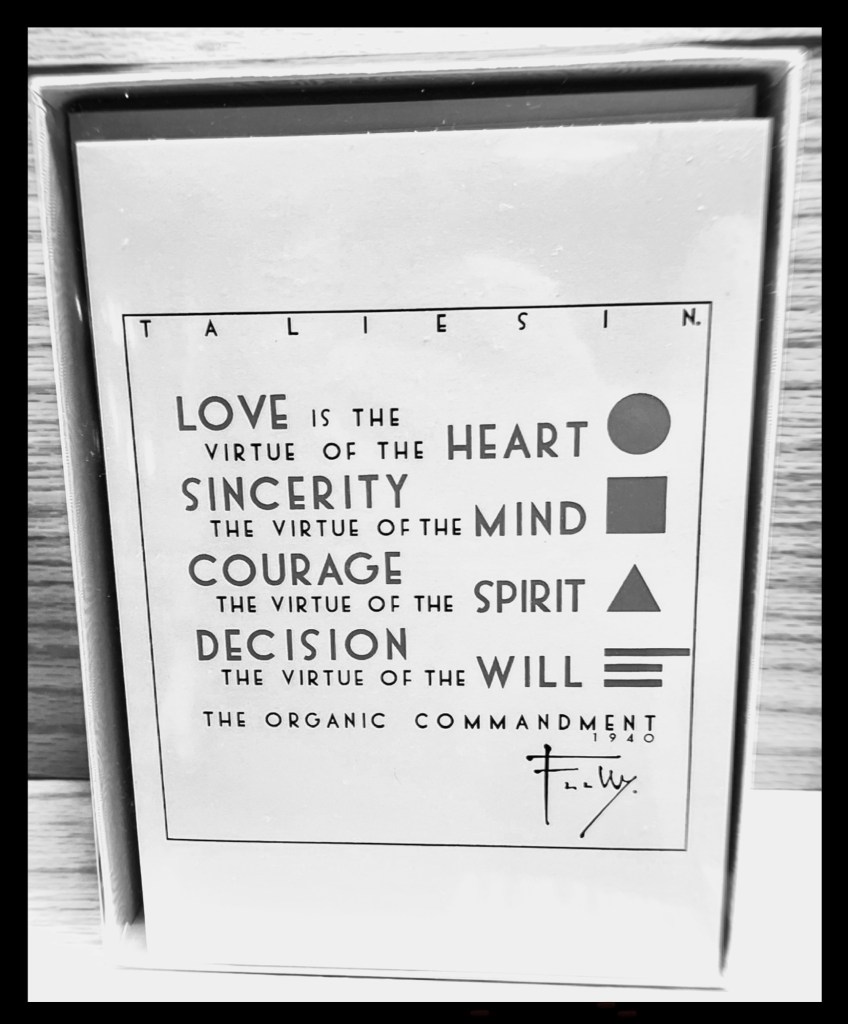 TALIESIN.
LOVE IS THE
VIRTUE OF THE HEART
SINCERITY
THE VIRTUE OF THE MIND
COURAGE
THE VIRTUE OF THE SPIRIT
DECISION
THE VIRTUE OF THE WILL
THE ORGANIC COMMANDMENT
1940